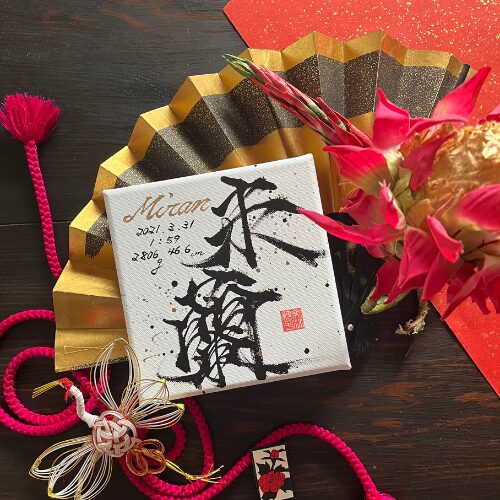 Miran
2021.3.31
1:59
2806g 46.6cm
来
彌